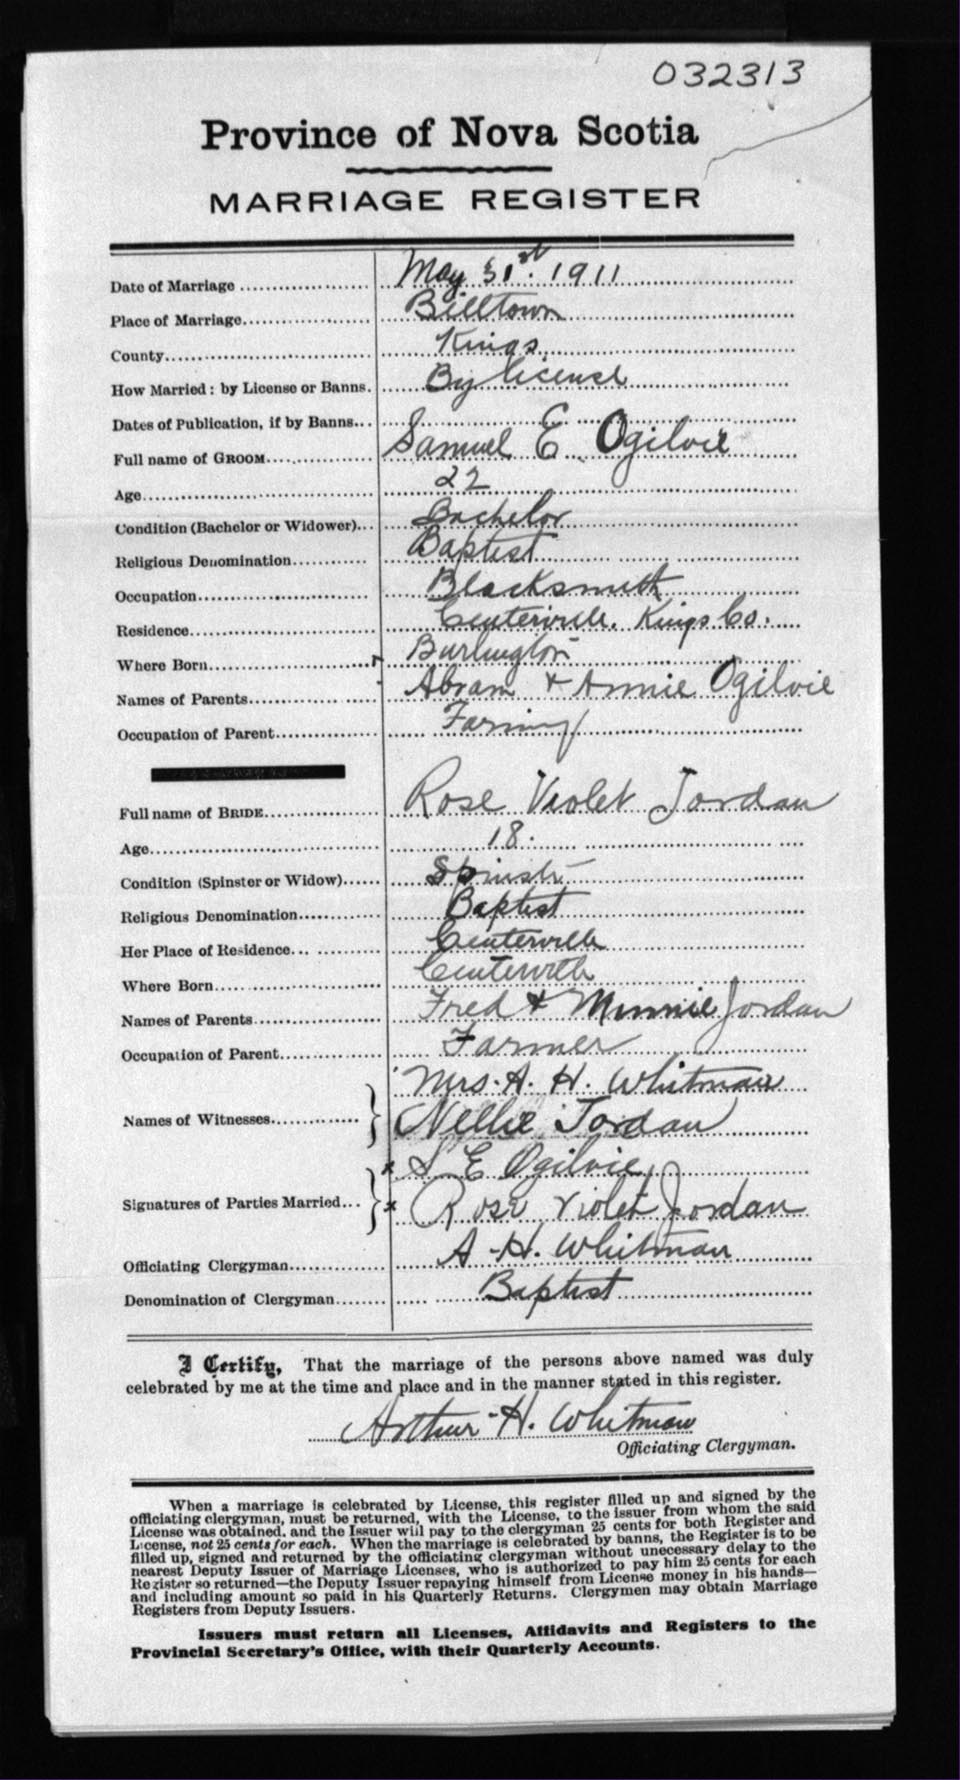 032313
Province of Nova Scotia
MARRIAGE REGISTER
Date of Marriage May 31st. 1911
Place of Marriage Billtown
County Kings
How Married: by License or Banns. By license
Dates of Publication, if by Banns
Full name of GROOM Samuel E Ogilvie
Age 22
Condition (Bachelor or Widower) Bachelor
Religious Denomination Baptist
Occupation Blacksmith
Residence Centerville. Kings Co.
Where Born Burlington
Names of Parents Abram & Annie Ogilvie
Occupation of Parent Farming
Full name of BRIDE Rose Violet Jordan
Age 18.
Condition (Spinster or Widow) Spinster
Religious Denomination Baptist
Her Place of Residence Centerville
Where Born Centerville
Names of Parents Fred & Minnie Jordan
Occupation of Parent Farmer
Mrs. A. H. Whitman
Names of Witnesses Nellie Jordan
x S E Ogilvie
Signatures of Parties Married x Rose Violet Jordan
Officiating Clergyman A. H. Whitman
Denomination of Clergyman Baptist
I Certify, That the marriage of the persons above named was duly
celebrated by me at the time and place and in the manner stated in this register.
Arthur H. Whitman
Officiating Clergyman.
When a marriage is celebrated by License, this register filled up and signed by the
officiating clergyman, must be returned, with the License, to the issuer from whom the said
License was obtained, and the Issuer will pay to the clergyman 25 cents for both Register and
License, not 25 cents for each. When the marriage is celebrated by banns, the Register is to be
filled up, signed and returned by the officiating clergyman without unnecessary delay to the
nearest Deputy Issuer of Marriage Licenses, who is authorized to pay him 25 cents for each
Register so returned—the Deputy Issuer repaying himself from License money in his hands—
and including amount so paid in his Quarterly Returns. Clergymen may obtain Marriage
Registers from Deputy Issuers.
Issuers must return all Licenses, Affidavits and Registers to the
Provincial Secretary's Office, with their Quarterly Accounts.